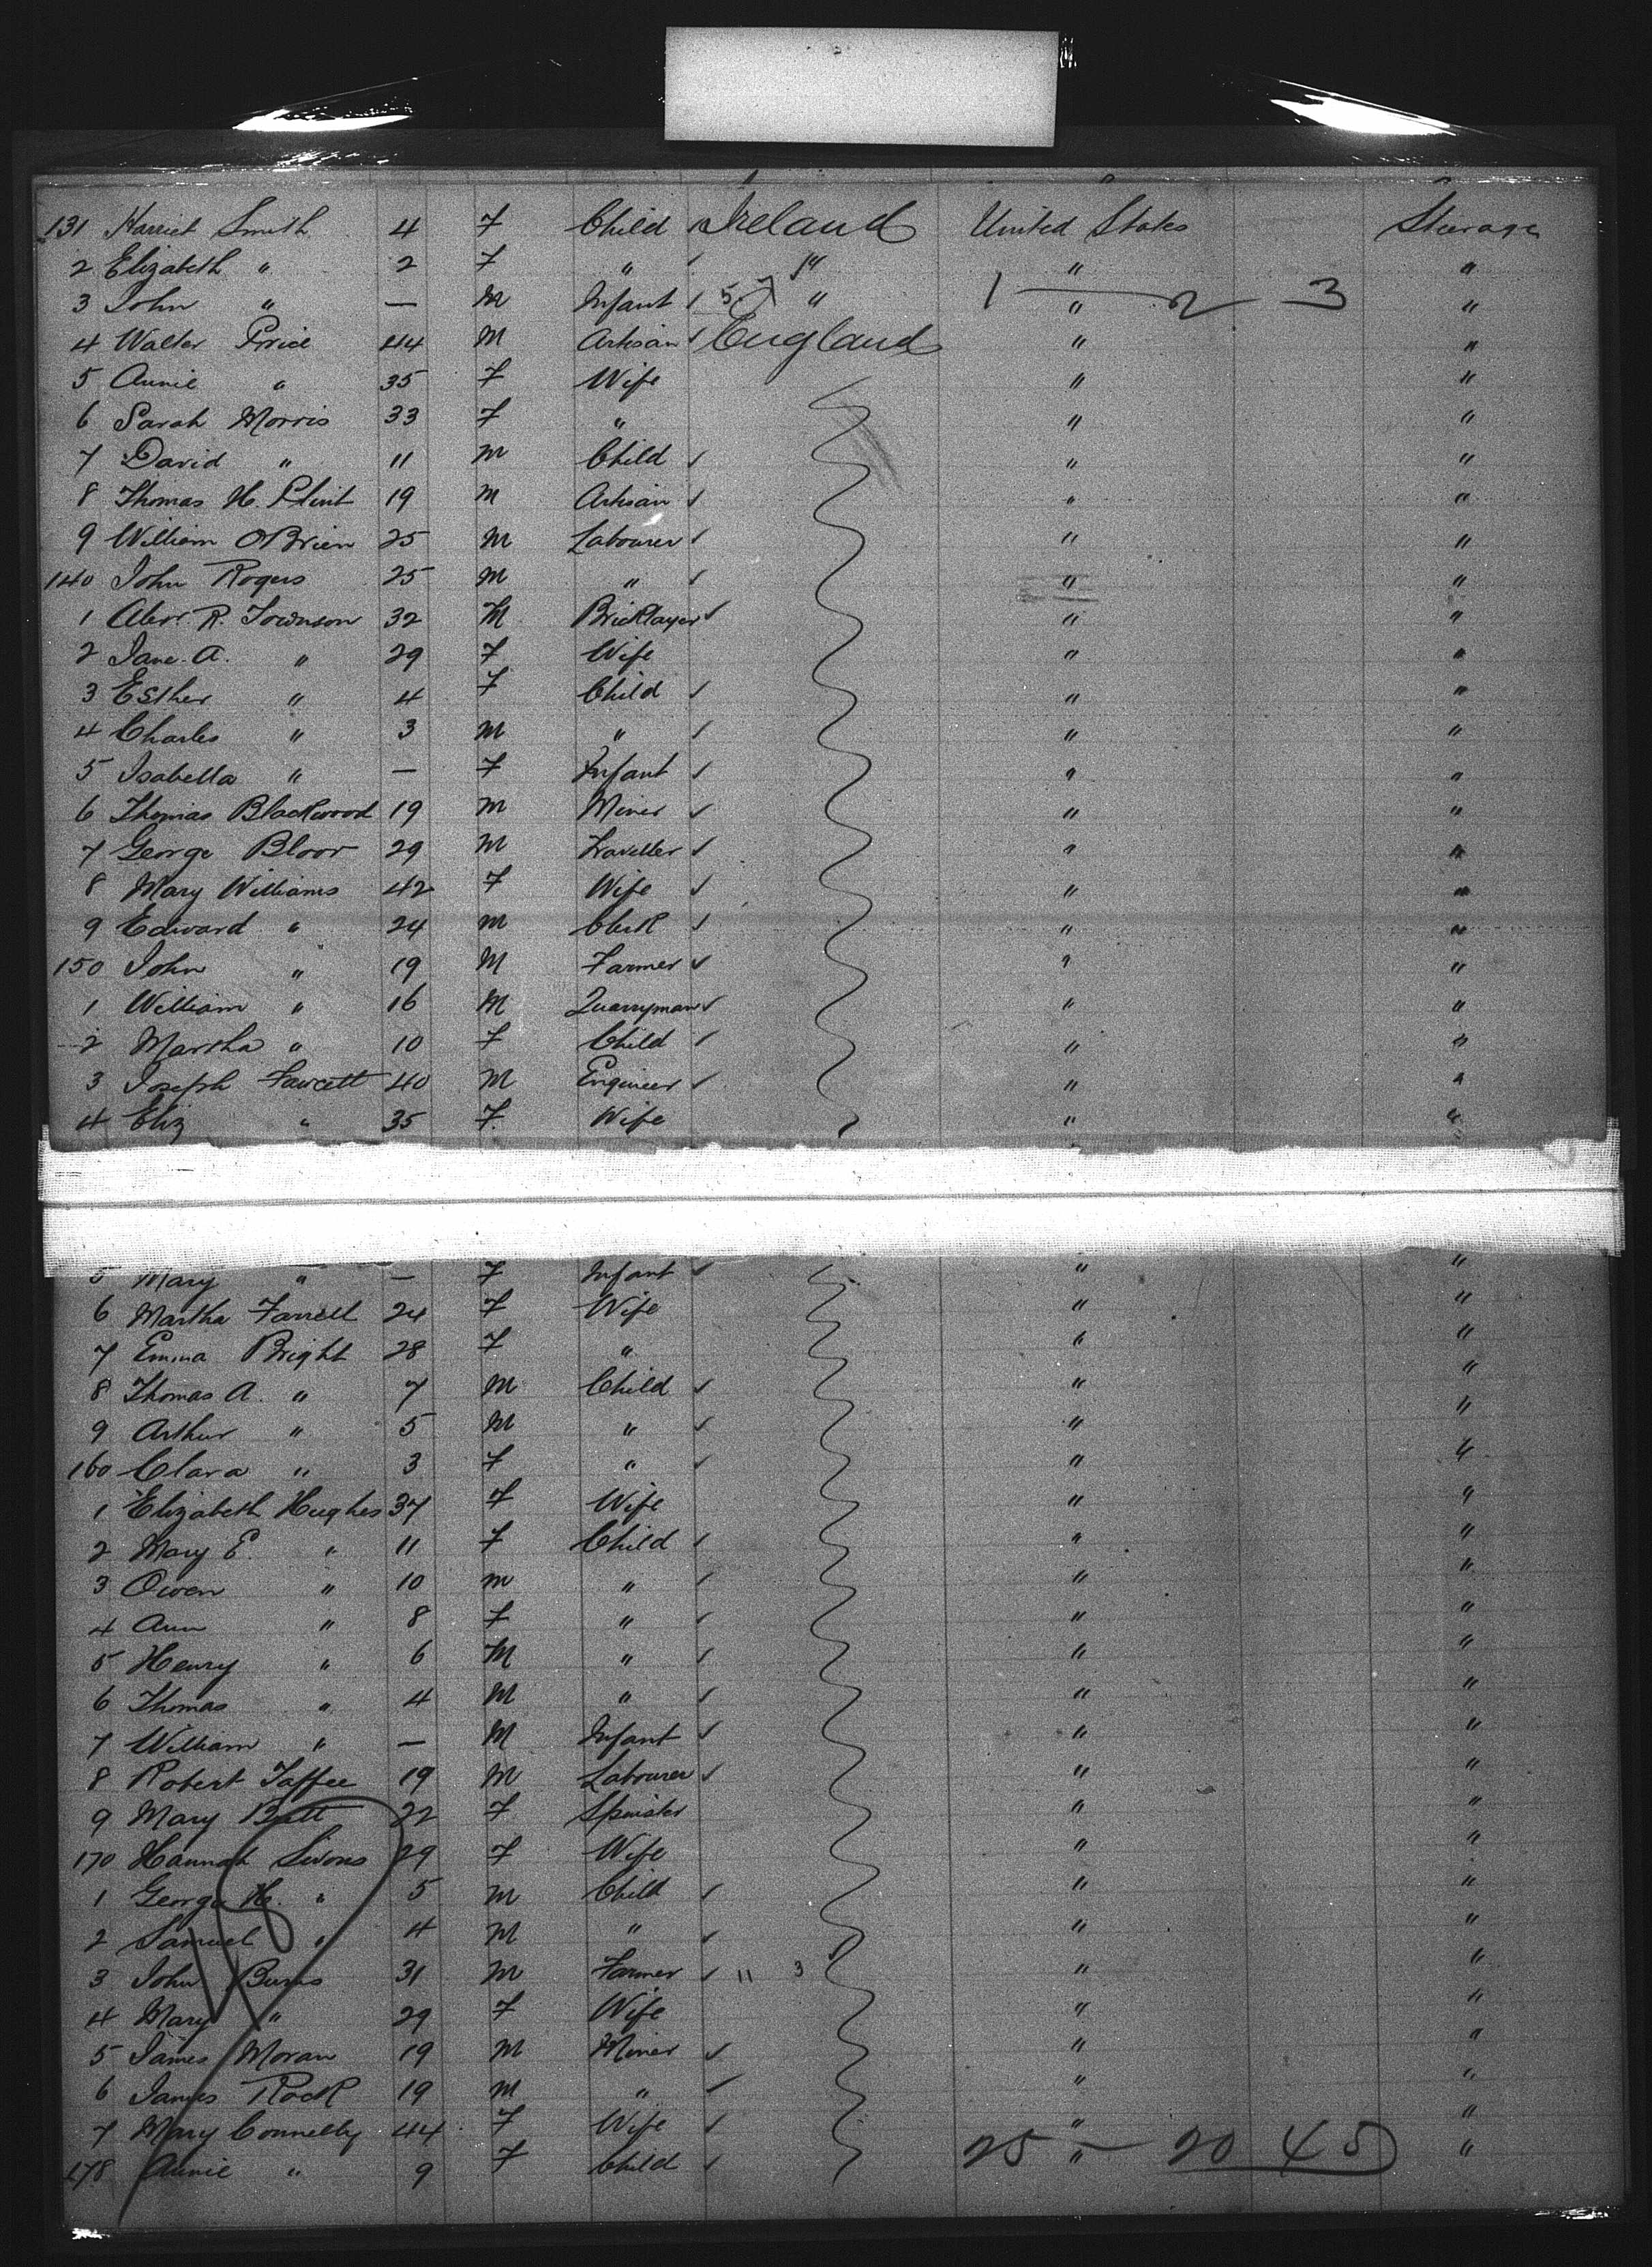 131 Harriet Smith 4 F Child Ireland United States Steerage
2 Elizabeth " 2 F " " " "
3 John " — M Infant 57 " 1 — " 2 3 "
4 Walter Price 44 M Artisan England " "
5 Annie " 35 F Wife " "
6 Sarah Morris 33 F " " "
7 David " 11 M Child " "
8 Thomas H. Flint 19 M Artisan " "
9 William O'Brien 25 M Labourer " "
140 John Rogers 25 M " " "
1 Alexr R. Townson 32 M Bricklayer " "
2 Jane A. " 29 F Wife " "
3 Esther " 4 F Child " "
4 Charles " 3 M " " "
5 Isabella " — F Infant " "
6 Thomas Blackwood 19 M Miner " "
7 George Bloor 29 M Traveller " "
8 Mary Williams 42 F Wife " "
9 Edward " 24 M Clerk " "
150 John " 19 M Farmer " "
1 William " 16 M Quarryman " "
2 Martha " 10 F Child " "
3 Joseph Fawcett 40 M Engineer " "
4 Eliz " 35 F. Wife " "
5 Mary " — F Infant " "
6 Martha Farrell 24 F Wife " "
7 Emma Bright 28 F " " "
8 Thomas A. " 7 M Child " "
9 Arthur " 5 M " " "
160 Clara " 3 F " " "
1 Elizabeth Hughes 37 F Wife " "
2 Mary E. " 11 F Child " "
3 Owen " 10 M " " "
4 Ann " 8 F " " "
5 Henry " 6 M " " "
6 Thomas " 4 M " " "
7 William " — M Infant " "
8 Robert Taffee 19 M Labourer " "
9 Mary Butt 22 F Spinster " "
170 Hannah 29 F Wife " "
1 George H. " 5 M Child " "
2 Samuel " 4 M " " "
3 John Burns 31 M Farmer 11 3 " "
4 Mary " 29 F Wife " "
5 James Moran 19 M Miner " "
6 James Rock 19 M " " "
7 Mary Connelly 44 F Wife " "
178 Annie " 9 F Child 25 " — 20 45 "